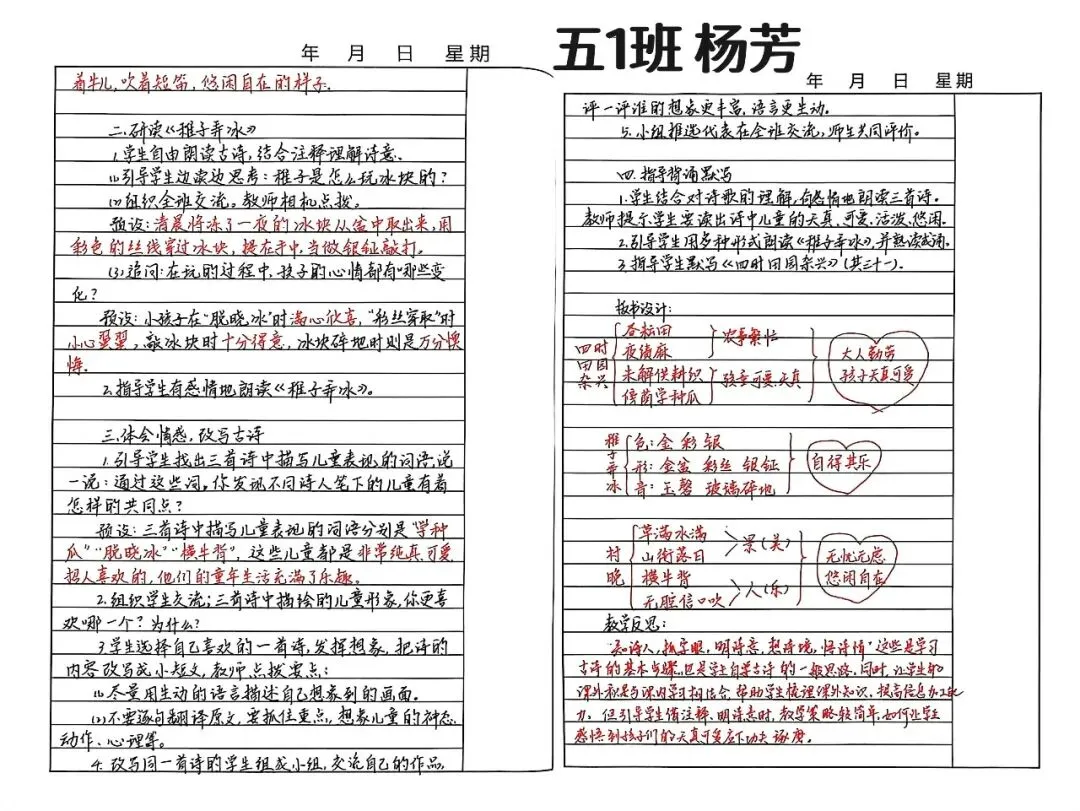 五1班 杨芳
年 月 日 星期
着牛儿,吹着短笛,悠闲自在的样子。
二.研读《稚子弄冰》
1.学生自由朗读古诗,结合注释理解诗意。
(1)引导学生边读边思考:稚子是怎么玩冰块的?
(2)组织全班交流。教师相机点拨。
预设:清晨将冻了一夜的冰块从盆中取出来,用
彩色的丝线穿过冰块,提在手中,当做银钲敲打。
(3)追问:在玩的过程中,孩子的心情都有哪些变
化?
预设:小孩子在“脱晓冰”时满心欣喜,“彩丝穿取”时
小心翼翼,敲冰块时十分得意,冰块碎地时则是万分懊
悔。
2.指导学生有感情地朗读《稚子弄冰》。
三.体会情感,改写古诗
1.引导学生找出三首诗中描写儿童表现的词语,说
一说:通过这些词,你发现不同诗人笔下的儿童有着
怎样的共同点?
预设:三首诗中描写儿童表现的词语分别是“学种
瓜”“脱晓冰”“横牛背”,这些儿童都是非常纯真可爱,
招人喜欢的,他们的童年生活充满了乐趣。
2.组织学生交流;三首诗中描绘的儿童形象,你更喜
欢哪一个?为什么?
3.学生选择自己喜欢的一首诗,发挥想象,把诗的
内容改写成小短文,教师点拨要点:
(1)尽量用生动的语言描述自己想象到的画面。
(2)不要逐句翻译原文,要抓住重点,想象儿童的神态、
动作、心理等。
4.改写同一首诗的学生组成小组,交流自己的作品,
年 月 日 星期
评一评谁的想象更丰富,语言更生动。
5.小组推选代表在全班交流,师生共同评价。
四.指导背诵默写
1.学生结合对诗歌的理解,有感情地朗读三首诗。
教师提示学生要读出诗中儿童的天真、可爱、活泼、悠闲。
2.引导学生用多种形式朗读《稚子弄冰》,并熟读成诵。
3.指导学生默写《四时田园杂兴》(其三十一)。
板书设计:
四时田园杂兴
昼耘田
夜绩麻
农事繁忙
未解供耕织
傍荫学种瓜
孩童可爱、天真
大人勤劳
孩子天真可爱
稚子弄冰
色:金 彩 银
形:金盆 彩丝 银钲
音:玉磬 玻璃碎地
自得其乐
村晚
草满水满
山衔落日
景(美)
横牛背
无腔信口吹
人(乐)
无忧无虑
悠闲自在
教学反思:
“知诗人,抓字眼,明诗意,想诗境,悟诗情”这些是学习
古诗的基本步骤,也是学生自学古诗的一般思路,同时,让学生的
课外积累与课内学习相结合,帮助学生梳理课外知识,提高信息加工能
力。但引导学生借注释、明诗意时,教学策略较简单,如何让学生
感悟到孩子们的天真可爱应下功夫琢磨。